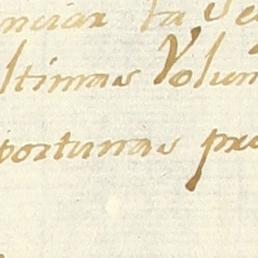 nciar la Se
ltimas Volun
portunas pr